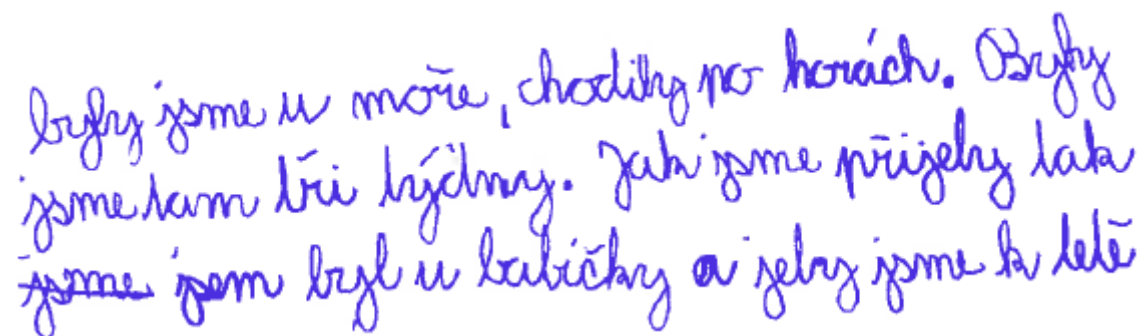 byly jsme u moře, chodily po horách. Byly
jsme tam tři týdny. Jak jsme přijely tak
jsme jsem byl u babičky a jely jsme k tetě